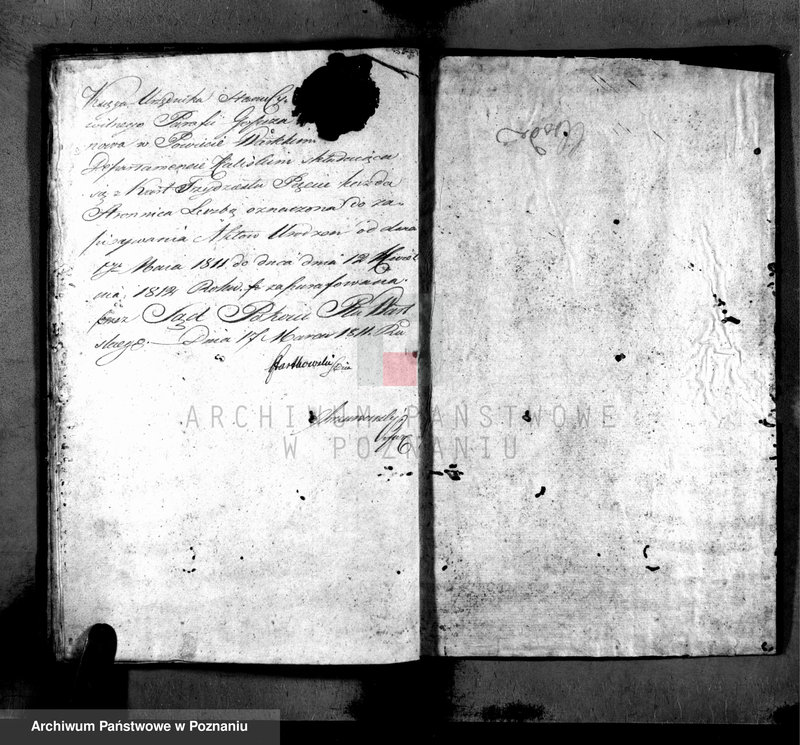 Xsięga Urzędnika Stanu Cy-
wilnego Parafii
nowa w Powiecie Wartskim
Departamencie Kaliskim składaiąca
się z Kart Trzydziestu Pięciu każda
Stronnica Liczbą oznaczona do za-
pisywania Aktow Urodzeń od dnia
Maia 1811 do dnia
1812 Roku zaparafowana
przez Sąd Pokoiu Ptu Wart
skiego. Dnia 17 Marca 1811 Ru
Bartkowski
ARCHIWUM PAŃSTWOWE
W POZNANIU
Archiwum Państwowe w Poznaniu